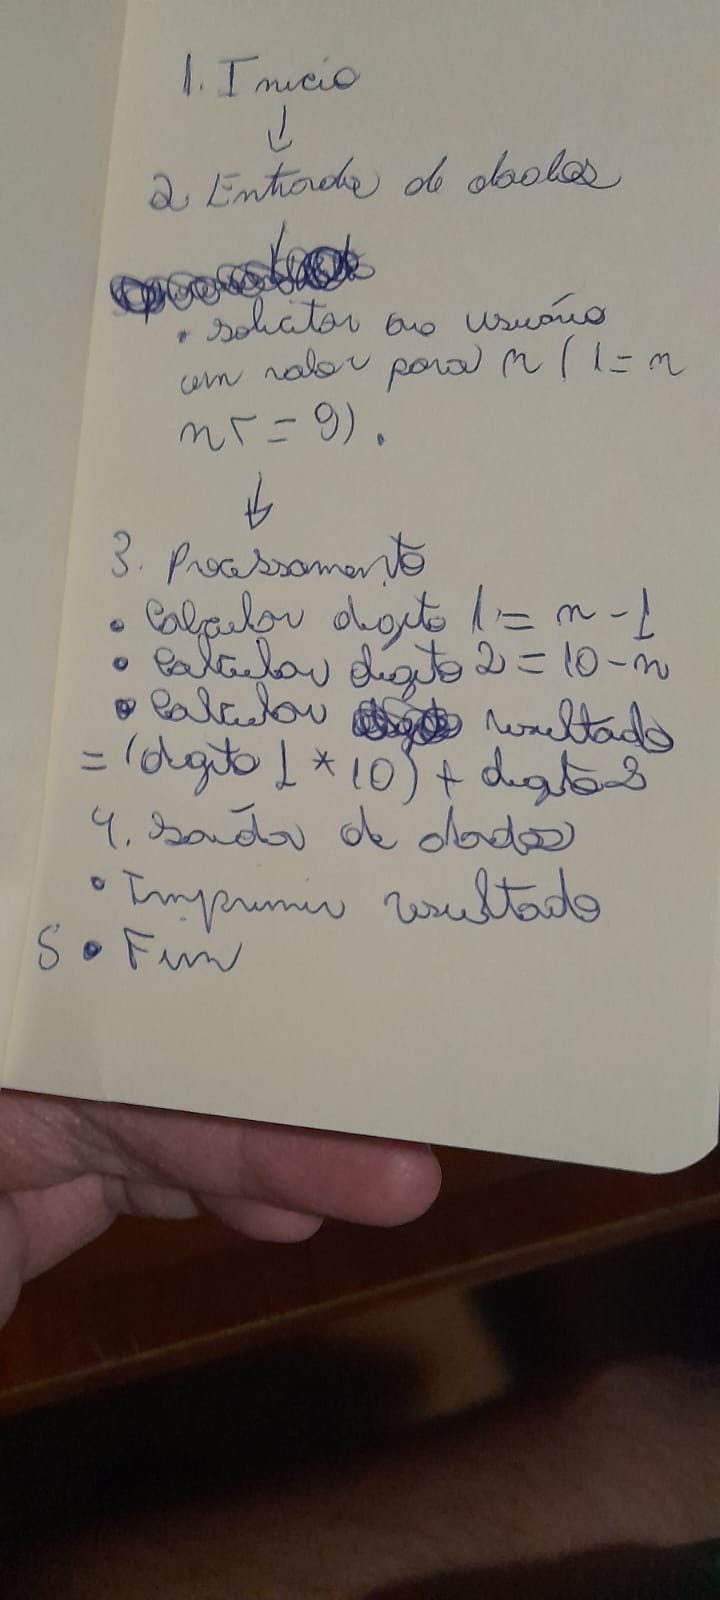 1. Inicio
↓
2. Entrada de dados
↓
• solicitar ao usuário
um valor para n (1 = n
n < = 9).
↓
3. Processamento
• Calcular digito 1 = n - 1
• Calcular digito 2 = 10 - n
• Calcular resultado
= (digito 1 * 10) + digito 2
4. saída de dados
• Imprimir resultado
5 • Fim